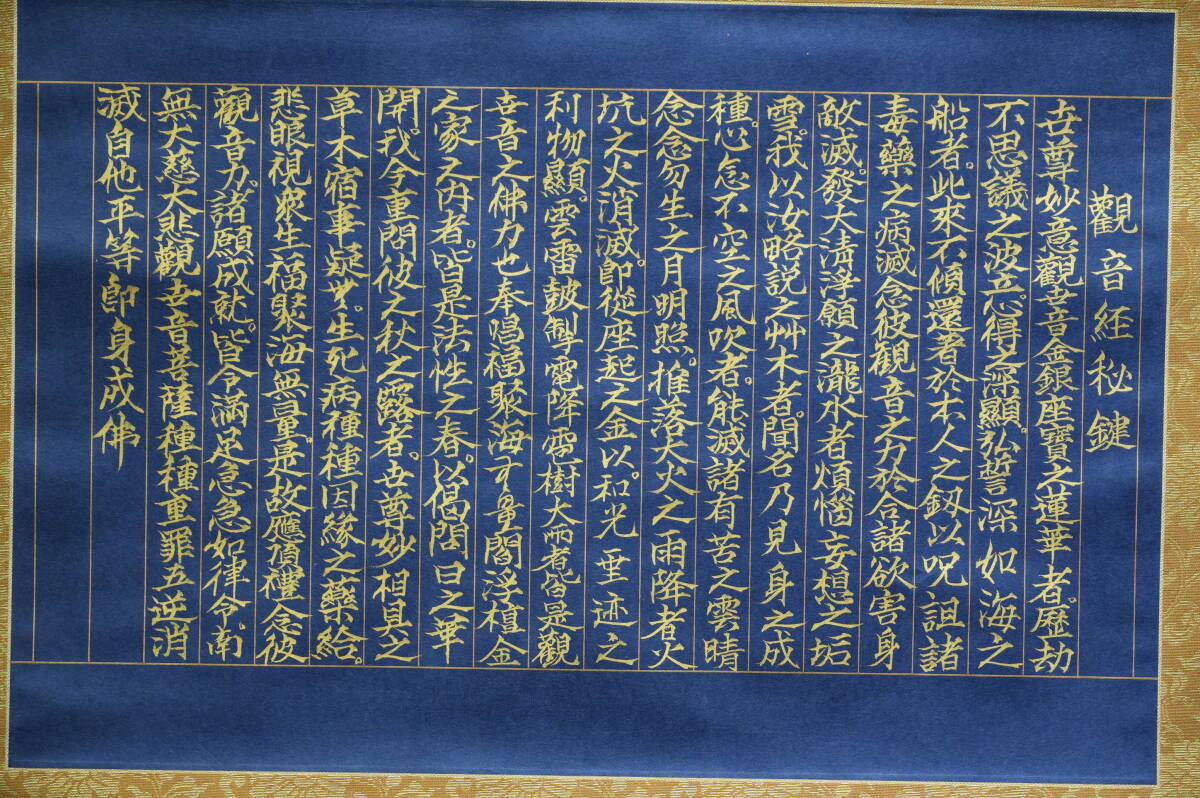 觀音経秘鍵
世尊妙意觀世音金銀座寶之蓮華者。歴劫
不思議之波立。心得之深顯。弘誓深如海之
船者。此來不傾還著於本人之釼以呪詛諸
毒藥之病滅念彼觀音之力於合諸欲害身
敵滅。發大清淨願之瀧水者煩惱妄想之垢
雪。我以汝略説之艸木者。聞名乃見身之成
種。心念不空之風吹者。能滅諸有苦之雲晴
念念勿生之月明照。推落大火之雨降者火
坑之火消滅。即從座起之金以。和光垂迹之
利物顯。雲雷皷掣電降雹樹大雨者皆是觀
世音之佛力也奉唱福聚海無量閻浮檀金
之家之内者。皆是法性之春。以偈問曰之華
開。我今重問彼之秋之露者。世尊妙相具之
草木宿事疑無。生死病種種因縁之藥給。
悲眼視衆生福聚海無量。是故應頂禮念彼
觀音力。諸願成就。皆令滿足急急如律令。南
無大慈大悲觀世音菩薩種種重罪五逆消
滅自他平等即身成佛